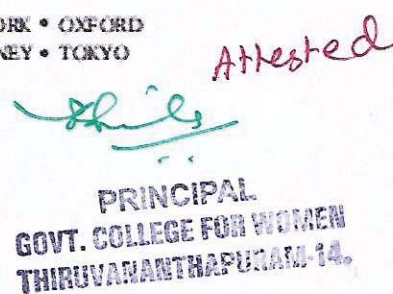 ORK • OXFORD
NEY • TOKYO
Attested
PRINCIPAL
GOVT. COLLEGE FOR WOMEN
THIRUVANANTHAPURAM-14.